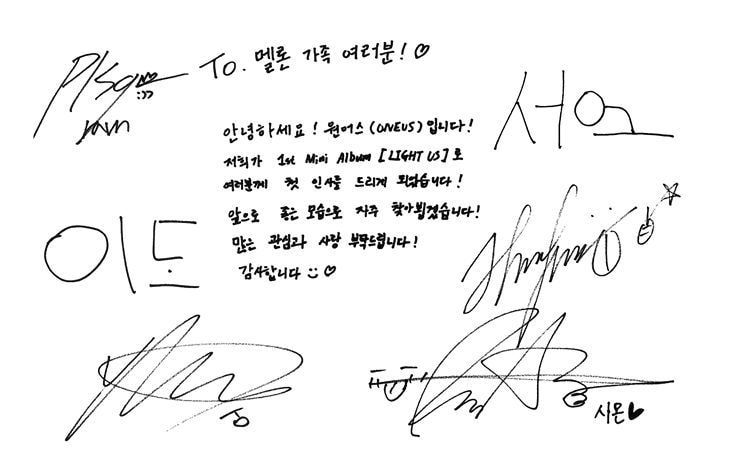 To. 멜론 가족 여러분! ♡
안녕하세요! 원어스(ONEUS)입니다!
저희가 1st Mini Album [LIGHT US]로
여러분께 첫 인사를 드리게 되었습니다!
앞으로 좋은 모습으로 자주 찾아뵙겠습니다!
많은 관심과 사랑 부탁드립니다!
감사합니다 :) ♡
서호
이도
시온♥